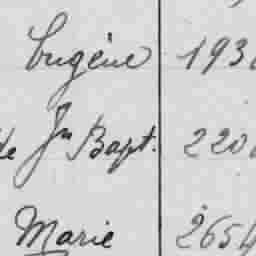 Eugène 193
de Jn Bapt. 220
Marie 2654